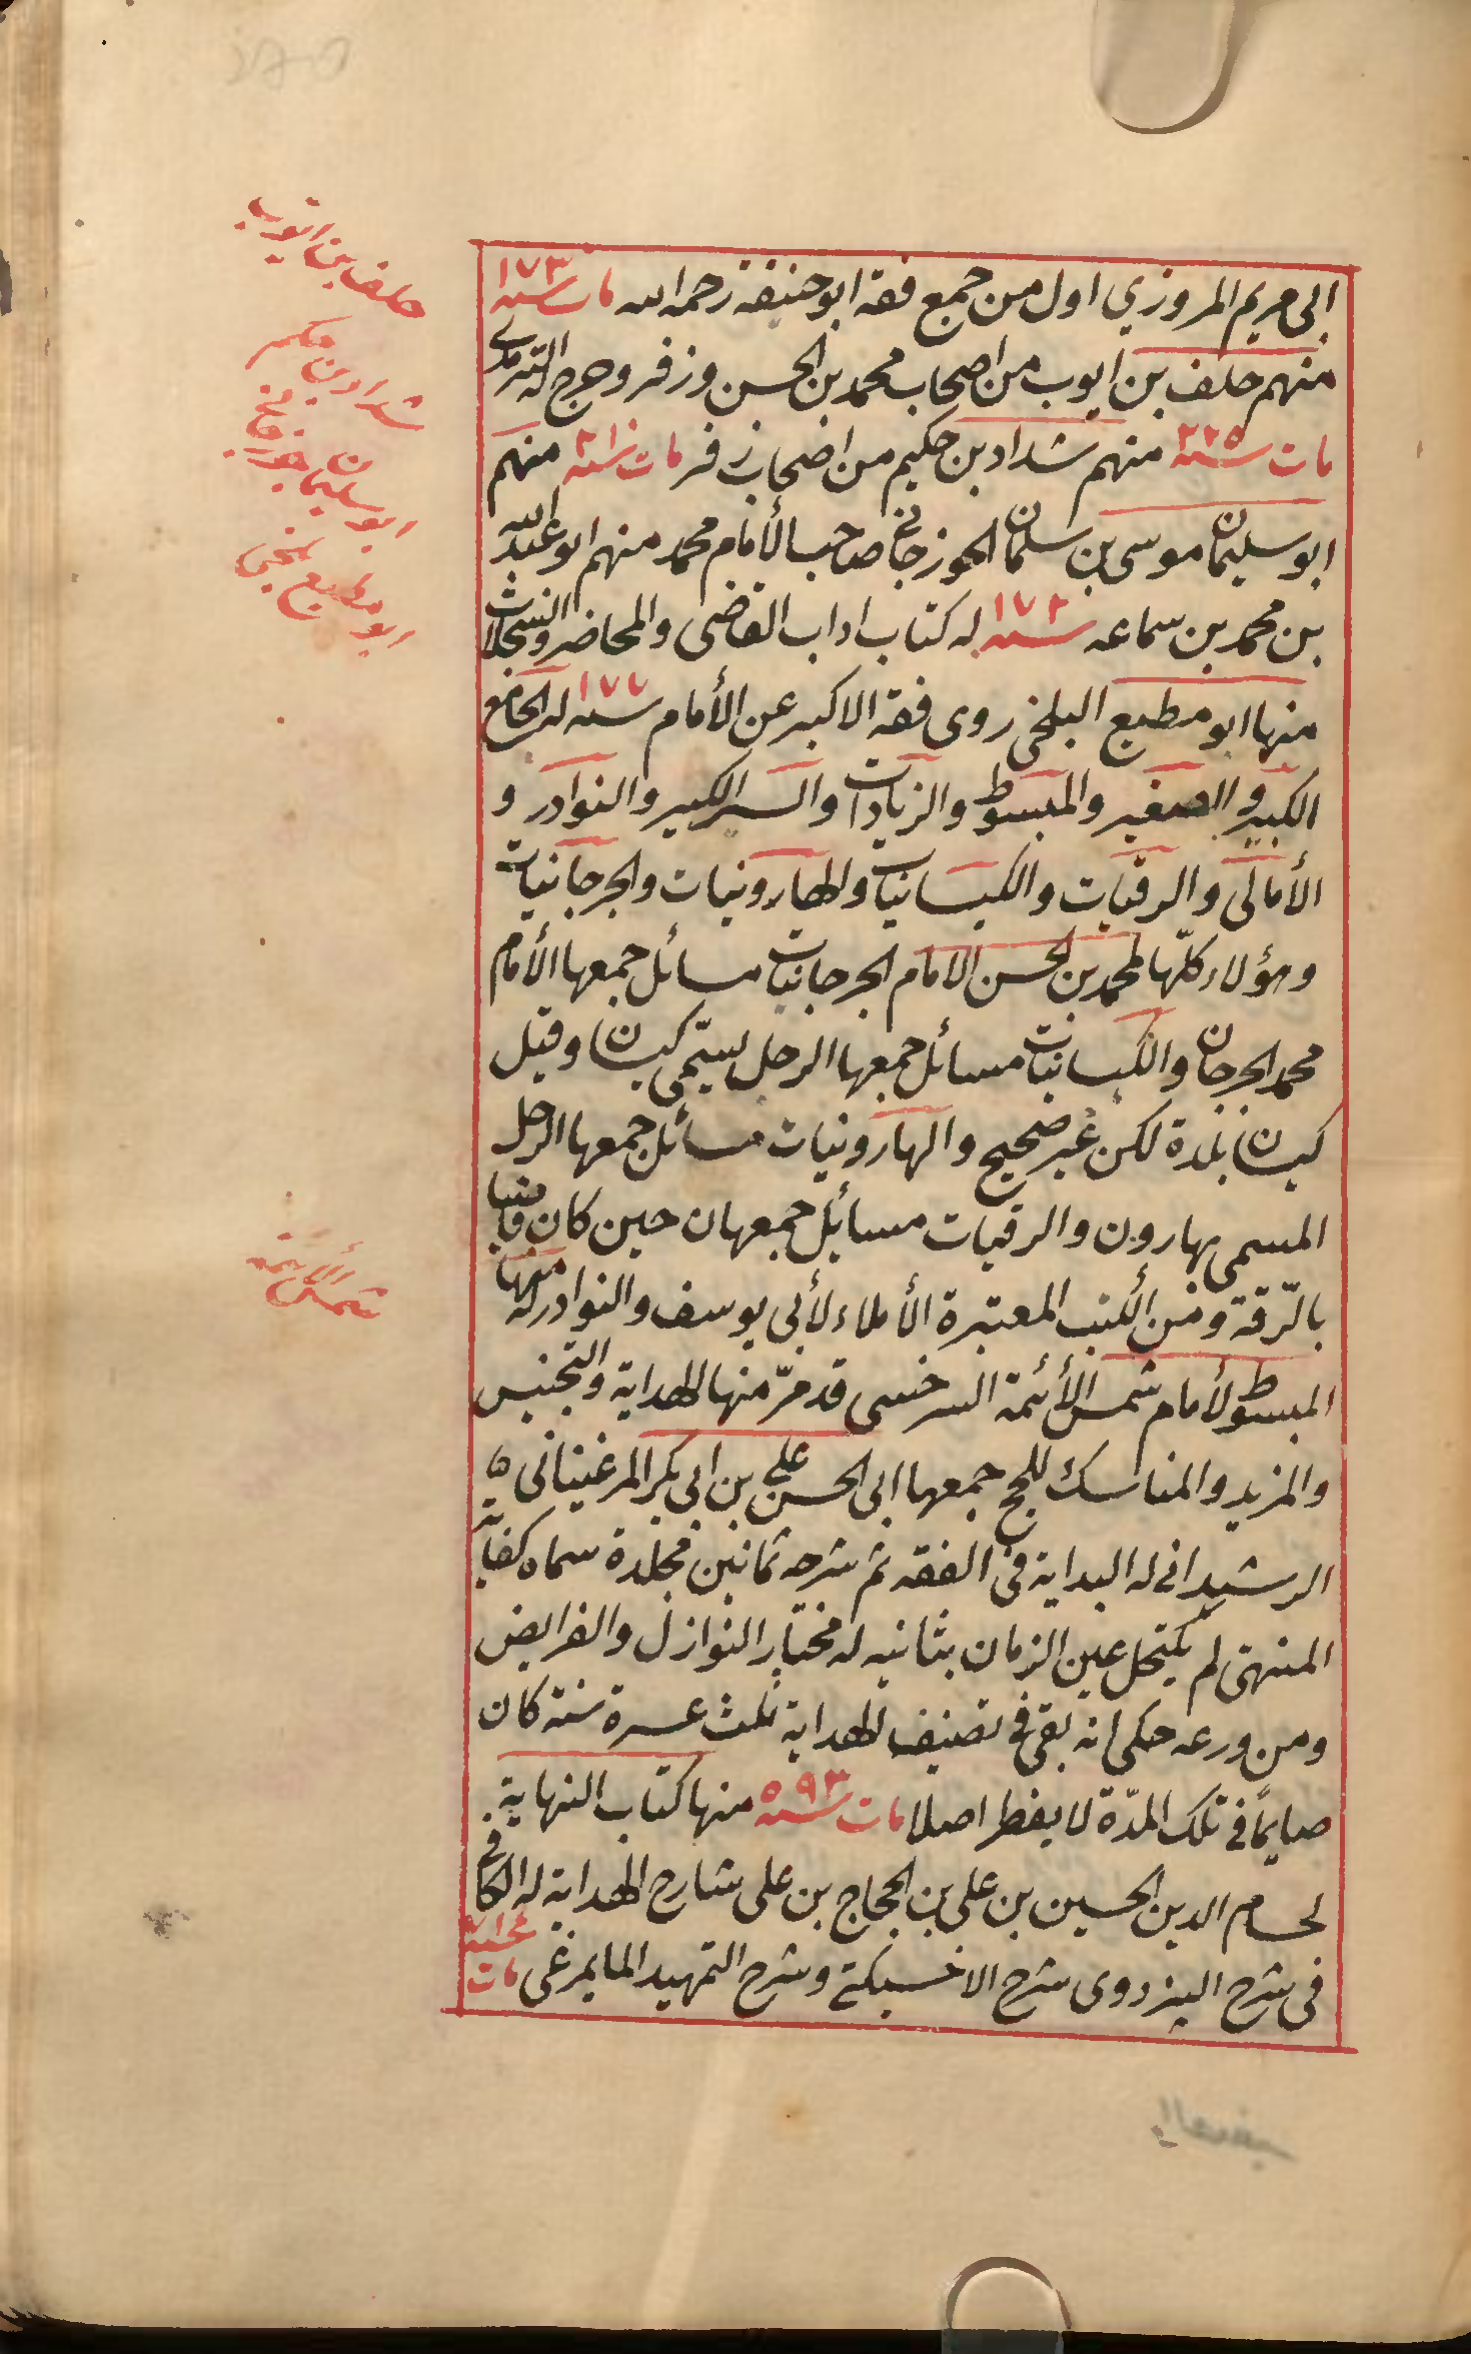 ابى مريم المروزي اول من جمع فقه ابو حنيفة رحمه الله مات سنه ١٧٣
منهم خلف بن ايوب من اصحاب محمد بن الحسن وزفر وخرج له الترمذى
مات سنه ٢٢٥ منهم شداد بن حكيم من اصحاب زفر مات سنه منهم
ابو سليمان موسى بن سلمان الجوزجانى صاحب الأمام محمد منهم ابو عبد الله
بن محمد بن سماعه سنه ١٧٢ له كتاب اداب القاضى والمحاضر والسجلات
منها ابو مطيع البلخى روى فقه الاكبر عن الأمام سنه ١٧٧ له الجامع
الكبير والصغير والمبسوط والزيادات والسير الكبير والنوادر و
الأمالى والرقيات والكيسانيات والهارونيات والجرجانيات
وهؤلاء كلّها لمحمد بن الحسن الامام الجرجانيات مسائل جمعها الأمام
محمد الجرجان والكيسانيات مسائل جمعها الرجل يسمّى كيسان وقيل
كيسان بلدة لكن غير صحيح والهارونيات مسائل جمعها الرجل
المسمى بهارون والرقيات مسائل جمعهان حين كان قاضيا
بالرّقة ومن الكتب المعتبرة الأملاء لأبى يوسف والنوادر له منها
المبسوط لأمام شمس الأئمة السرخسى قد مرّ منها الهداية والتجنيس
والمزيد والمناسك للحج جمعها ابى الحسن على بن ابى بكر المرغينانى
الرشيدانى له البداية فى الفقه ثم شرحه ثمانين مجلدة سماه كفاية
المنتهى لم يكتحل عين الزمان بثانيه له مختار النوازل والفرايض
ومن ورعه حكى انه بقى فى تصنيف الهداية ثلث عسرة سنة كان
صايماً فى تلك المدّة لا يفطر اصلا مات سنه ٥٩٣ منها كتاب النهاية
لحسام الدين الحسين بن على بن الحجاج بن على شارح الهداية له الكافى
فى شرح البزدوى شرح الاخسيكتى وشرح التمهيد المايمرغى مات
خلف بن ايوب
شداد بن حكيم
ابو سليمان جوزجانى
ابو مطيع بلخى
شمس الأئمة
والصغير